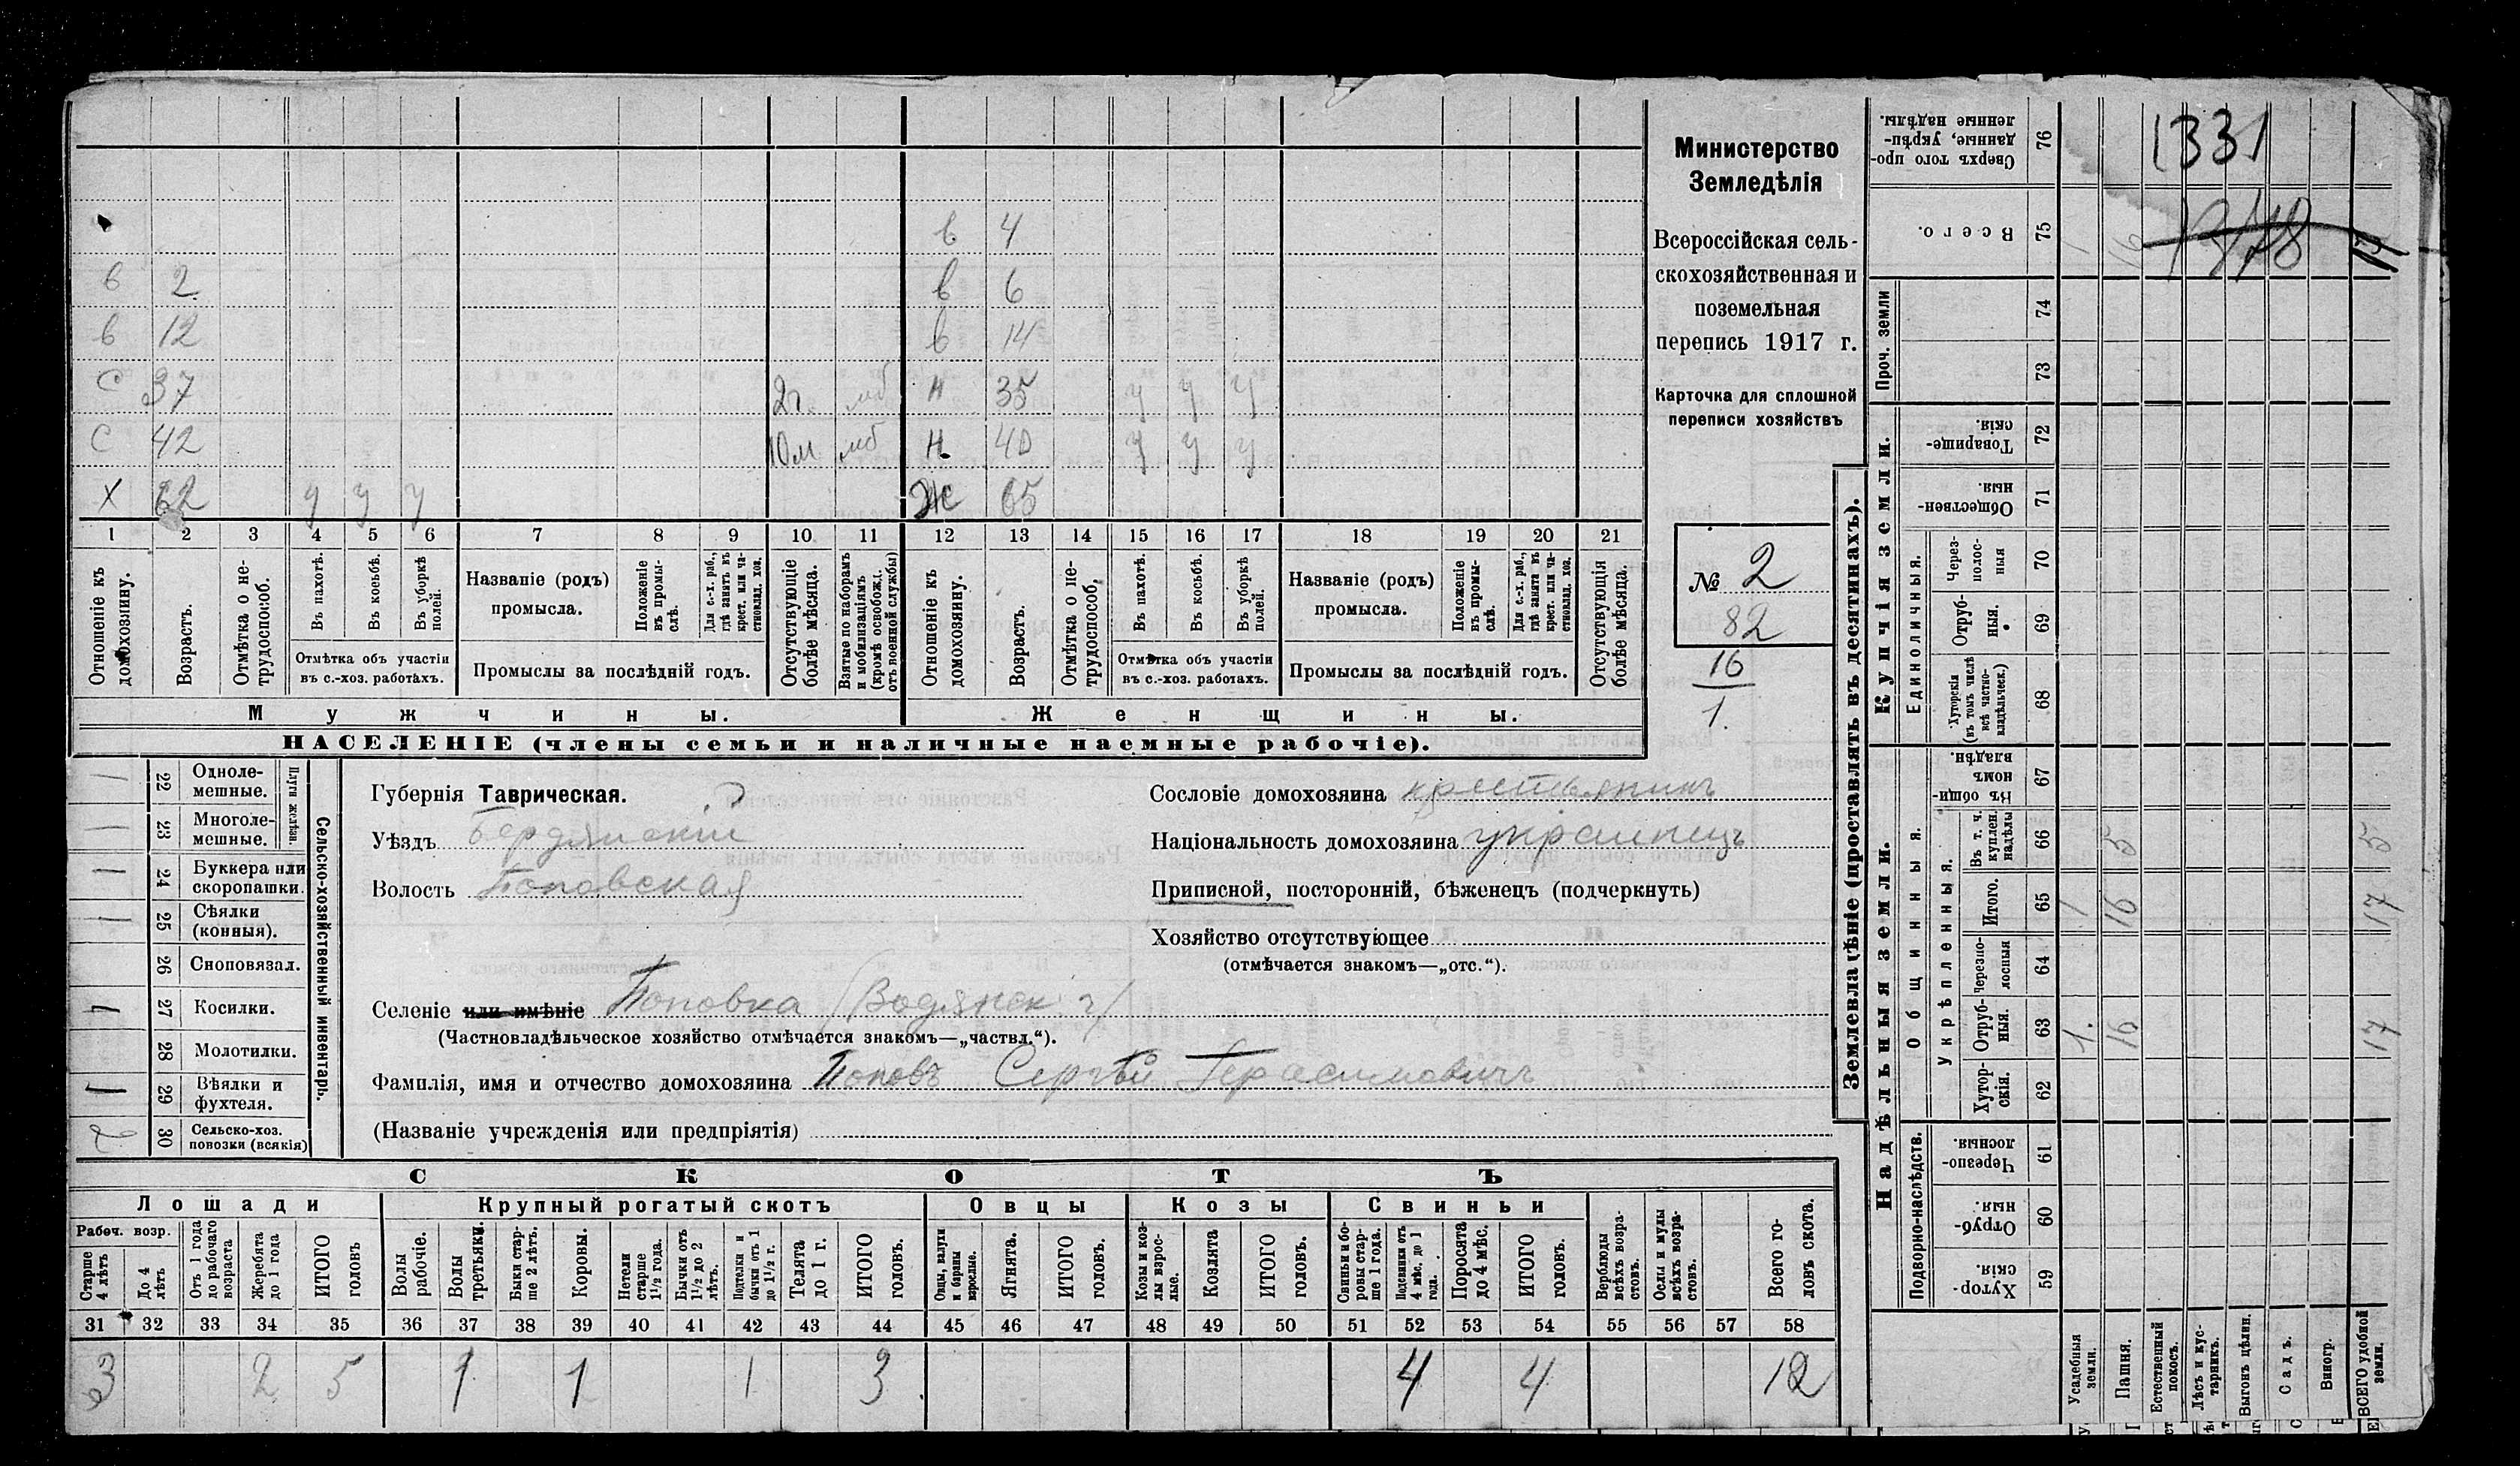 в 4
в 2 в 6
в 12 в 14
С 37 2г. мб Н 35 у у у
С 42 10м мб Н. 40 у у у
Х 62 у у у Ж 65
1 2 3 4 5 6 7 8 9 10 11 12 13 14 15 16 17 18 19 20 21
Отношеніе къ домохозяину.
Возрастъ.
Отмѣтка о не-трудоспособ.
Въ пахотѣ.
Въ косьбѣ.
Въ уборкѣ полей.
Отмѣтка объ участіи въ с.-хоз. работахъ.
Названіе (родъ) промысла.
Положеніе въ промы-слѣ.
Для с.-х. раб., гдѣ занятъ въ крест. или ча-стновлад. хоз.
Промыслы за послѣдній годъ.
Отсутствующіе болѣе мѣсяца.
Взятые по наборамъ и мобилизаціямъ (кромѣ освобожд. отъ военной службы)
Отношеніе къ домохозяину.
Возрастъ.
Отмѣтка о не-трудоспособ.
Въ пахотѣ.
Въ косьбѣ.
Въ уборкѣ полей.
Отмѣтка объ участіи въ с.-хоз. работахъ.
Названіе (родъ) промысла.
Положеніе въ промы-слѣ.
Для с.-х. раб., гдѣ занята въ крест. или ча-стновлад. хоз.
Промыслы за послѣдній годъ.
Отсутствующія болѣе мѣсяца.
Мужчины.
Женщины.
НАСЕЛЕНІЕ (члены семьи и наличные наемные рабочіе).
Министерство
Земледѣлія
Всероссійская сель-
скохозяйственная и
поземельная
перепись 1917 г.
Карточка для сплошной
переписи хозяйствъ
№ 2
82
16
1.
Сельско-хозяйственный инвентарь.
Плуги желѣзн.
1 22 Одноле-мешные.
1 23 Многоле-мешные.
1 24 Буккера или скоропашки.
1 25 Сѣялки (конныя).
26 Сноповязал.
1 27 Косилки.
28 Молотилки.
1 29 Вѣялки и фухтеля.
2 30 Сельско-хоз. повозки (всякія)
Губернія Таврическая.
Уѣздъ Бердянскій
Волость Поповская
Сословіе домохозяина крестьянинъ
Національность домохозяина украинецъ
Приписной, посторонній, бѣженецъ (подчеркнуть)
Хозяйство отсутствующее
(отмѣчается знакомъ—„отс.“).
Селеніе или имѣніе Поповка (Водянск. г/
(Частновладѣльческое хозяйство отмѣчается знакомъ—„частвл.“).
Фамилія, имя и отчество домохозяина Поповъ Сергѣй Герасимовичъ
(Названіе учрежденія или предпріятія)
СКОТЪ
Лошади Крупный рогатый скотъ Овцы Козы Свиньи
Рабоч. возр.
Старше 4 лѣтъ
До 4 лѣтъ
Отъ 1 года до рабочаго возраста
Жеребята до 1 года
ИТОГО головъ
Волы рабочіе.
Волы третьяки.
Быки стар-ше 2 лѣтъ.
Коровы.
Нетели старше 1½ года.
Бычки отъ 1½ до 2 лѣтъ.
Подтелки и бычки отъ 1 до 1½ г.
Телята до 1 г.
ИТОГО головъ.
Овцы, валухи и бараны взрослые.
Ягнята.
ИТОГО головъ.
Козы и коз-лы взрос-лые.
Козлята
ИТОГО головъ.
Свиньи и бо-ровы стар-ше 1 года.
Подсвинки отъ 4 мѣс. до 1 года.
Поросята до 4 мѣс.
ИТОГО головъ.
Верблюды всѣхъ возра-стовъ.
Ослы и мулы всѣхъ возра-стовъ.
Всего го-ловъ скота.
31 32 33 34 35 36 37 38 39 40 41 42 43 44 45 46 47 48 49 50 51 52 53 54 55 56 57 58
3 2 5 1 1 1 3 4 4 12
Землевладѣніе (проставлять въ десятинахъ).
Купчія земли.
Надѣльныя земли.
Сверхъ того про-данные, укрѣп-ленные надѣлы. 76
1331
Всего. 75 1 16 17
Проч. земли 74
73
Товарище-скія. 72
Обществен-ныя. 71
Единоличныя.
Через-полос-ныя 70
Отруб-ныя. 69
Хуторскія (въ томъ числѣ всѣ частно-владѣльческ.) 68
Общинныя.
Въ общин-номъ владѣн. 67
Укрѣпленныя.
Въ т. ч. куплен. надѣлы 66 5 5
Итого. 65 1 16 17
Черезпо-лосныя 64
Отруб-ныя. 63 1. 16 17
Хутор-скія. 62
Подворно-наслѣдств.
Черезпо-лосныя. 61
Отруб-ныя. 60
Хутор-скія. 59
Усадебныя земли.
Пашня.
Естественный покосъ.
Лѣсъ и кус-тарникъ.
Выгонъ цѣлин.
Садъ.
Виногр.
ВСЕГО удобной земли.